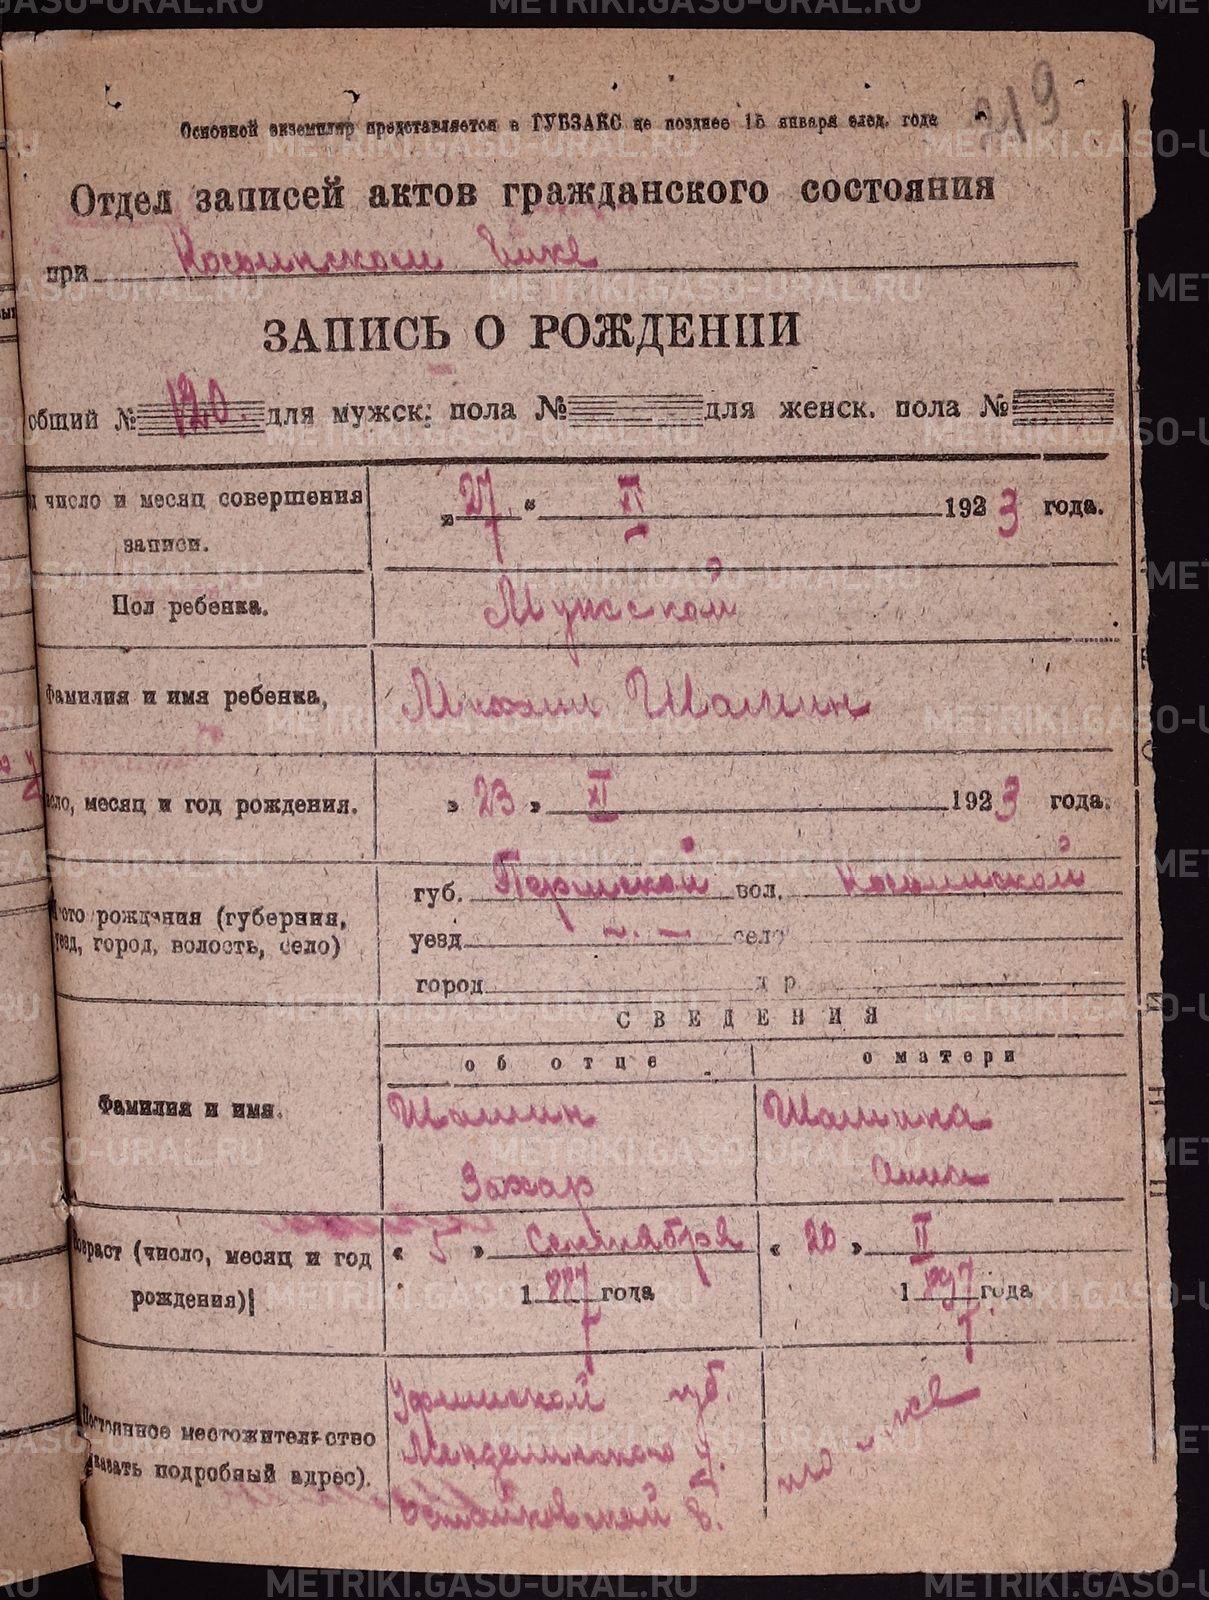 219
Основной экземпляр представляется в ГУБЗАКС не позднее 15 января след. года
Отдел записей актов гражданского состояния
при
ЗАПИСЬ О РОЖДЕНИИ
общий № 120. для мужск. пола № для женск. пола №
число и месяц совершения
записи.
„ 27 “ XI 1923 года.
Пол ребенка.
Мужской
Фамилия и имя ребенка,
Михаил Шамин
число, месяц и год рождения.
„ 23 „ XI 1923 года.
место рождения (губерния,
уезд, город, волость, село)
губ. Пермской вол. Косолинской
уезд — село
город др
СВЕДЕНИЯ
об отце
о матери
Фамилия и имя.
Шамин
Захар
Шамина
Анна
Возраст (число, месяц и год
рождения)
« 5 » Сентября
1887 года
« 20 » II
1897 года
Постоянное местожительство
(указать подробный адрес).
Уфимской губ.
Мензелинского у.
в.
то-же
METRIKI.GASO-URAL.RU